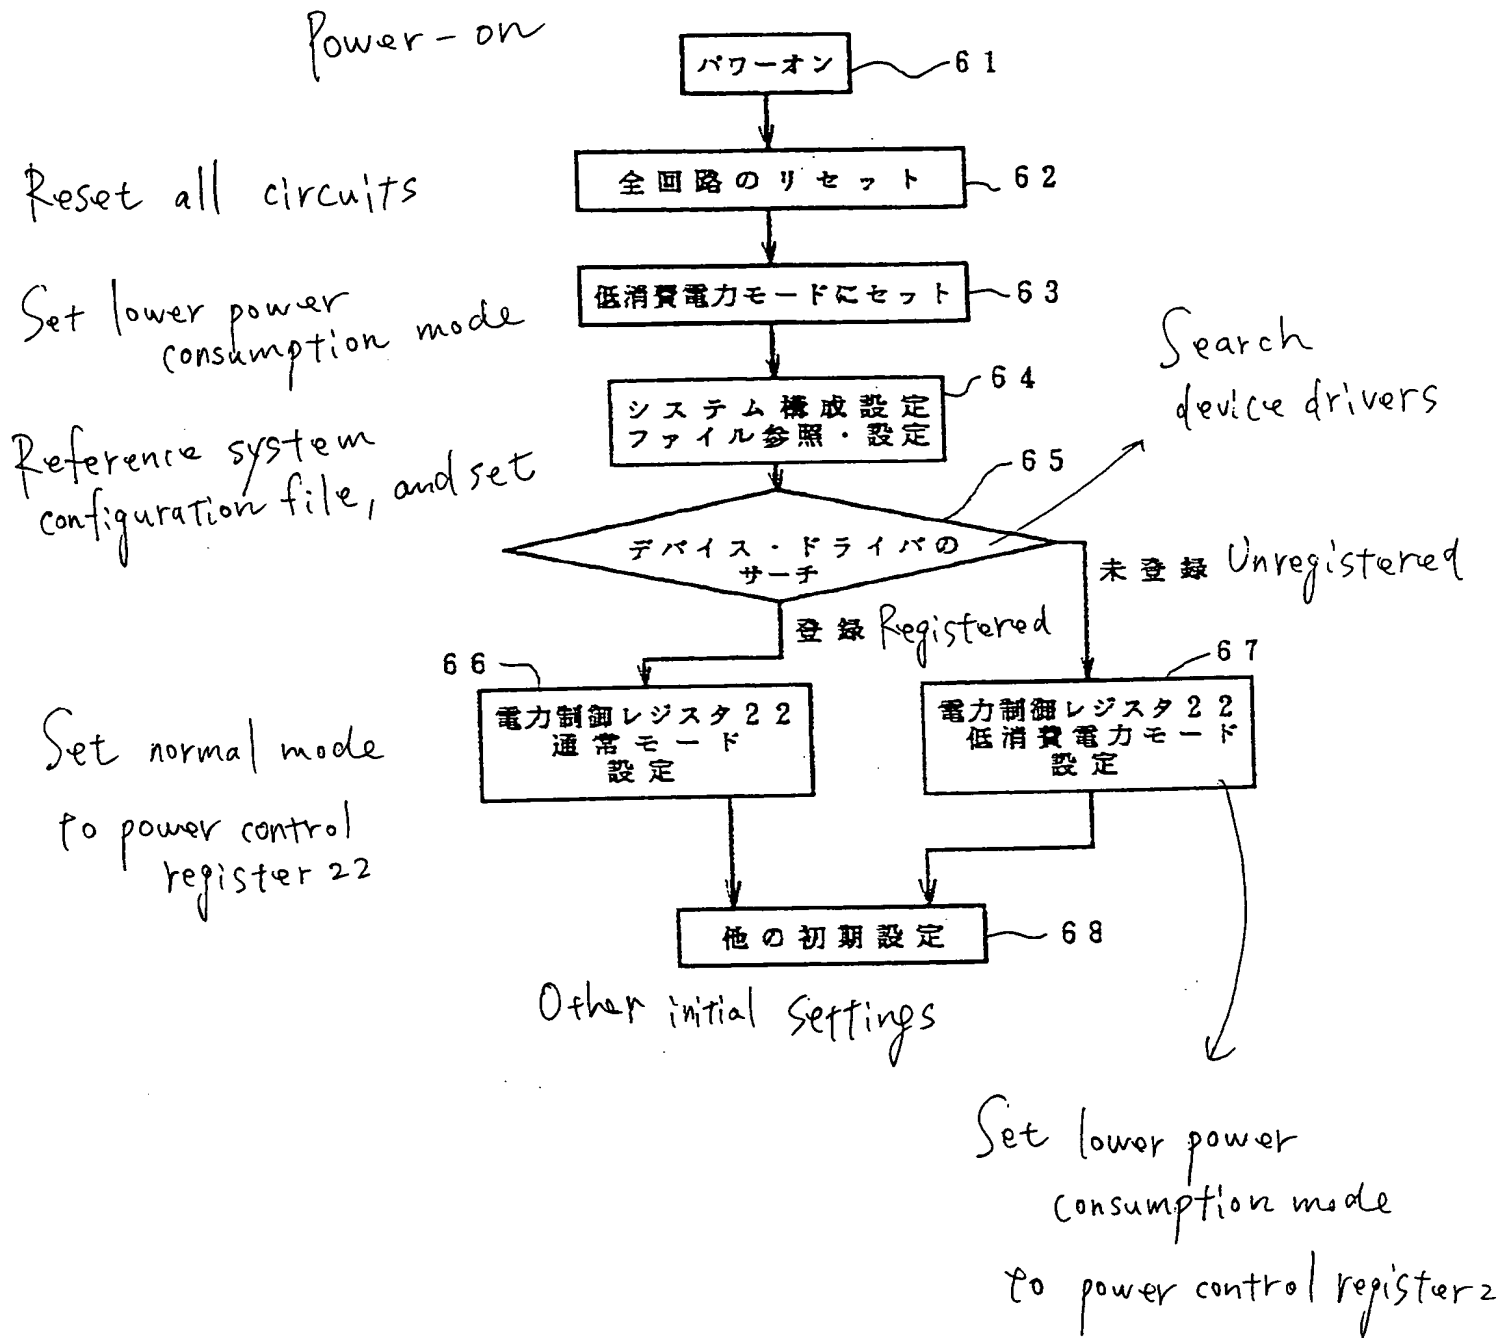 Power-on
パワーオン
61
Reset all circuits
全回路のリセット
62
Set lower power
consumption mode
低消費電力モードにセット
63
Reference system
configuration file, and set
システム構成設定
ファイル参照・設定
64
Search
device drivers
65
デバイス・ドライバの
サーチ
未登録 Unregistered
登録 Registered
66
67
Set normal mode
to power control
register 22
電力制御レジスタ22
通常モード
設定
電力制御レジスタ22
低消費電力モード
設定
他の初期設定
68
Other initial settings
Set lower power
consumption mode
to power control register 2